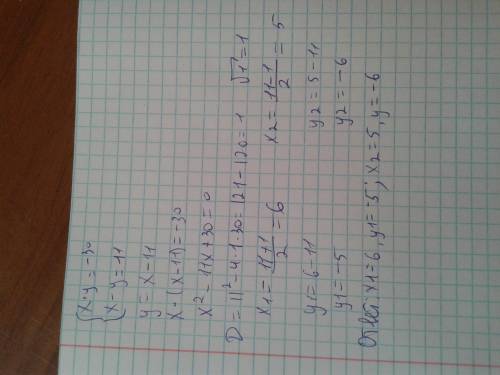 { x·y = -30
{ x - y = 11
y = x - 11
x · (x - 11) = -30
x² - 11x + 30 = 0
D = 11² - 4·1·30 = 121 - 120 = 1 √1 = 1
x1 = (11+1)/2 = 6 x2 = (11-1)/2 = 5
y1 = 6 - 11 y2 = 5 - 11
y1 = -5 y2 = -6
Ответ: x1 = 6, y1 = -5; x2 = 5, y = -6